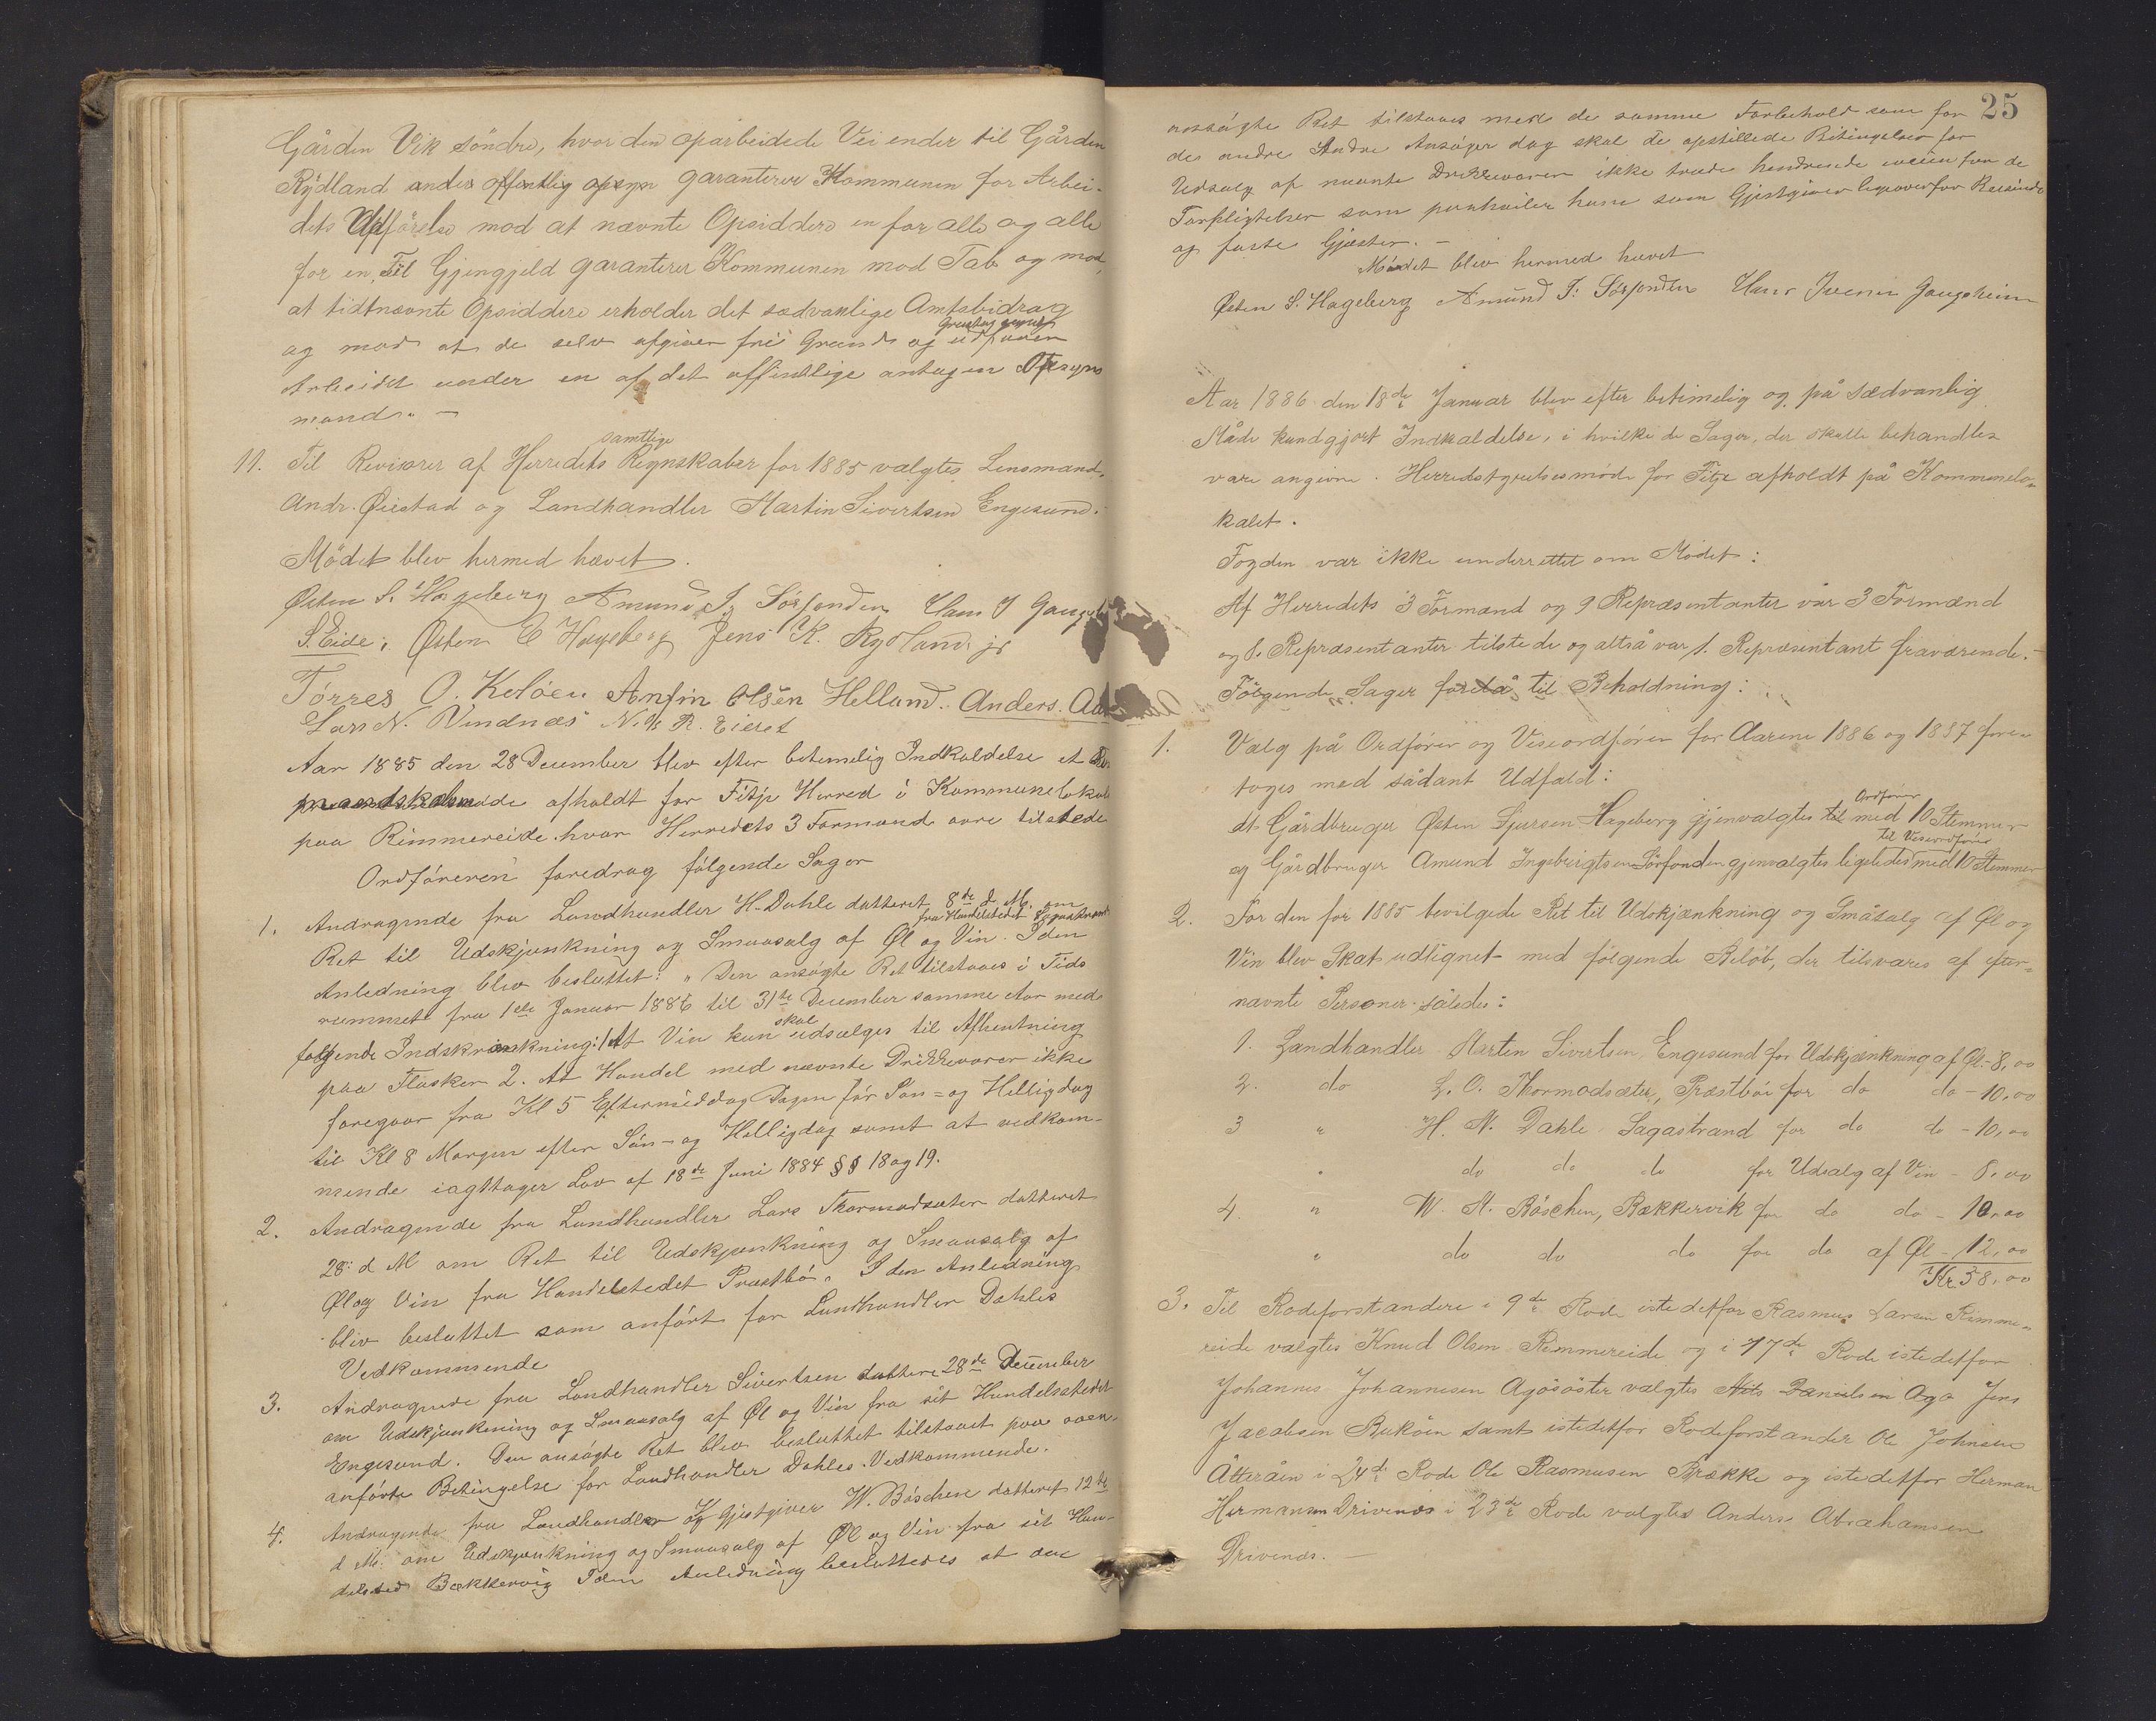 Gården Vik søndre, hvor den oparbeidede Vei ender til Gården
Rydland under offentlig opsyn garanterer Kommunen for Arbei-
dets Udførelse mod at nævnte Opsiddere en for alle og alle
for en, Til Gjengjeld garanterer Kommunen mod Tab og mod,
at tidtnævnte Opsiddere erholder det sædvanlige Amtsbidrag
og mod at de selv afgiver fri Grund og udfører
Arbeidet under en af det offentlige antagen Opsyns
mand. —
11. Til Revisorer af Herredets samtlige Regnskaber for 1885 valgtes Lensmand
Andr. Øiestad og Landhandler Martin Sivertsen Engesund.
Mödet blev hermed hævet.
Østen S. Hageberg Amund I. Sørfonden Hans I Gaugs
S. Eide, Østen E Hageberg Jens K. Rydland jr
Tórres O. Kelöen Anfin Olsen Helland. Anders. Aa
Lars N. Vindnæs N. R. Eierst
Aar 1885 den 28 December blev efter betimelig Indkaldelse et For
mandskabsmøde afholdt for Fitje Herred i Kommunelokal
paa Rimmereide hvor Herredets 3 Formænd vare tilstede
Ordføreren foredrog følgende Sager
1. Andragende fra Landhandler H. Dahle datteret 8de d. M. om
Ret til Udskjænkning og Smaasalg af Øl og Vin fra Handelstedet Sagastrand. I den
Anledning blev besluttet: „Den ansøgte Ret tilstaaes i Tids
rummet fra 1ste Januar 1886 til 31te December samme Aar med
følgende Indskrænkning: 1 At Vin kun skal udsælges til Afhentning
paa Flasker 2. At Handel med nævnte Drikkevarer ikke
foregaar fra Kl 5 Eftermiddag Dagen før Søn- og Helligdag
til Kl 8 Morgen efter Søn- og Helligdag samt at vedkom-
mende iagttager Lov af 18de Juni 1884 §§ 18 og 19.
2. Andragende fra Landhandler Lars Thormodsæter datteret
28. d M om Ret til Udskjænkning og Smaasalg af
Øl og Vin fra Handelstedet Præstbö. I den Anledning
blev besluttet som anført for Landhandler Dahles
Vedkommende
3. Andragende fra Landhandler Sivertsen dattere 28de December
om Udskjænkning og Smaasalg af Øl og Vin fra sit Handelssted
Engesund. Den ansøgte Ret blev besluttet tilstaaet paa oven-
anførte Betingelse for Landhandler Dahles Vedkommende.
4. Andragende fra Landhandler og Gjestgiver W. Böschen datteret 12te
d M. om Udskjænkning og Smaasalg af Øl og Vin fra sit Han-
delssted Bækkervig I den Anledning besluttedes at den
25
ansøgte Ret tilstaaes med de samme Forbehold som for
de andre Andre Ansøger dog skal de opstillede Betingelser for
Udsalg af nævnte Drikkevarer ikke træde hindrende iveien for de
Forpligtelser som paahviler ham som Gjestgiver ligeoverfor Reisende
og faste Gjæster. —
Mödet blev hermed hævet
Østen S. Hageberg Amund I. Sørfonden Hans Iversen Gaugsheim
Aar 1886 den 18de Januar blev efter betimelig og på sædvanlig
Måde kundgjort Indkaldelse, i hvilke de Sager, der skulle behandles
vare angivne. Herredstyrelsesmöde for Fitje afholdt på Kommunelo-
kalet.
Fogden var ikke underrettet om Mödet:
Af Herredets 3 Formænd og 9 Repræsentanter var 3 Formænd
og 8. Repræsentanter tilstede og altså var 1. Repræsentant fraværende.
Fölgende Sager forelå til Behandling:
1. Valg på Ordförer og Viseordförer for Aarene 1886 og 1887 fore-
toges med sådant Udfald:
at Gårdbruger Østen Sjursen Hageberg gjenvalgtes til Ordförer med 10 Stemmer
og Gårdbruger Amund Ingebrigtsen Sørfonden gjenvalgtes ligeledes til Viseordförer med 10 Stemmer
2. For den for 1885 bevilgede Ret til Udskjænkning og Småsalg af Øl og
Vin blev Skat udlignet med følgende Beløb, der tilsvares af efter-
nævnte Personer således:
1. Landhandler Marten Sivertsen, Engesund for Udskjænkning af Øl - 8,00
2. do L. O. Thormodsæter, Præstbö for do do - 10,00
3 " H. N. Dahle Sagastrand for do do - 10,00
" do do do for Udsalg af Vin - 8,00
4. " W. A. Böschen, Bækkervik for do do - 10,00
" do do do for do af Øl - 12,00
Kr 58,00
3. Til Rodeforstandere i 9de Rode istedetfor Rasmus Larsen Rimme-
reide valgtes Knud Olsen Rimmereide og i 17de Rode istedetfor
Johannes Johannesen Agösöster valgtes Nils Danielsen Aga Jens
Jacobsen Rukøen samt istedetfor Rodeforstander Ole Johnsen
Åtteråen i 24de Rode Ole Rasmusen Brække og istedetfor Herman
Hermansen Drivenes i 23de Rode valgtes Anders Abrahamsen
Drivenæs. —